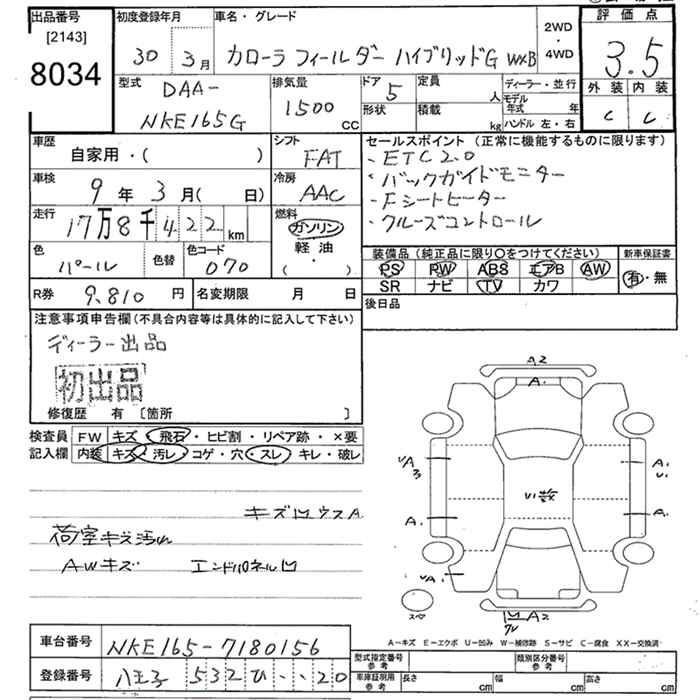 出品番号 初度登録年月 車名・グレード 2WD ・ 4WD 評価点
[2143]
8034 30年 3月 カローラ フィールダー ハイブリッドG WXB 3.5
型式 排気量 ドア 5 定員 人 ディーラー・並行 外装 内装
DAA- 1500 cc 形状 積載 kg モデル年式 年 C C
NKE165G ハンドル 左・右
車歴 自家用・( ) シフト FAT セールスポイント (正常に機能するものに限ります)
・ETC2.0
車検 9年 3月( 日) 冷房 AAC ・バックガイドモニター
・Fシートヒーター
走行 17万8千422km 燃料 ガソリン 軽油 ・( ) ・クルーズコントロール
色 パール 色替 色コード 070 装備品 (純正品に限り〇をつけてください) 新車保証書
PS PW ABS エアB AW 有・無
SR ナビ TV カワ
R券 9,810円 名変期限 月 日 後日品
注意事項申告欄 (不具合内容等は具体的に記入して下さい)
ディーラー出品
初出品
修復歴 有 〔箇所 〕
検査員 FW キズ・飛石・ヒビ割・リペア跡・×要
記入欄 内装 キズ・汚レ・コゲ・穴・スレ・キレ・破レ
キズ凹ウスA
荷室キズ汚れ
AWキズ エンドパネル凹
A2
A.
A.
U.
A.
A.
U数
A2
スペア
A-キズ E-エクボ U-凹み W-補修跡 S-サビ C-腐食 XX-交換済
車台番号 NKE165-7180156 型式指定番号 参考 類別区分番号 参考
登録番号 八王子 532 ひ ・・20 車庫証明用 参考 長さ cm 幅 cm 高さ cm